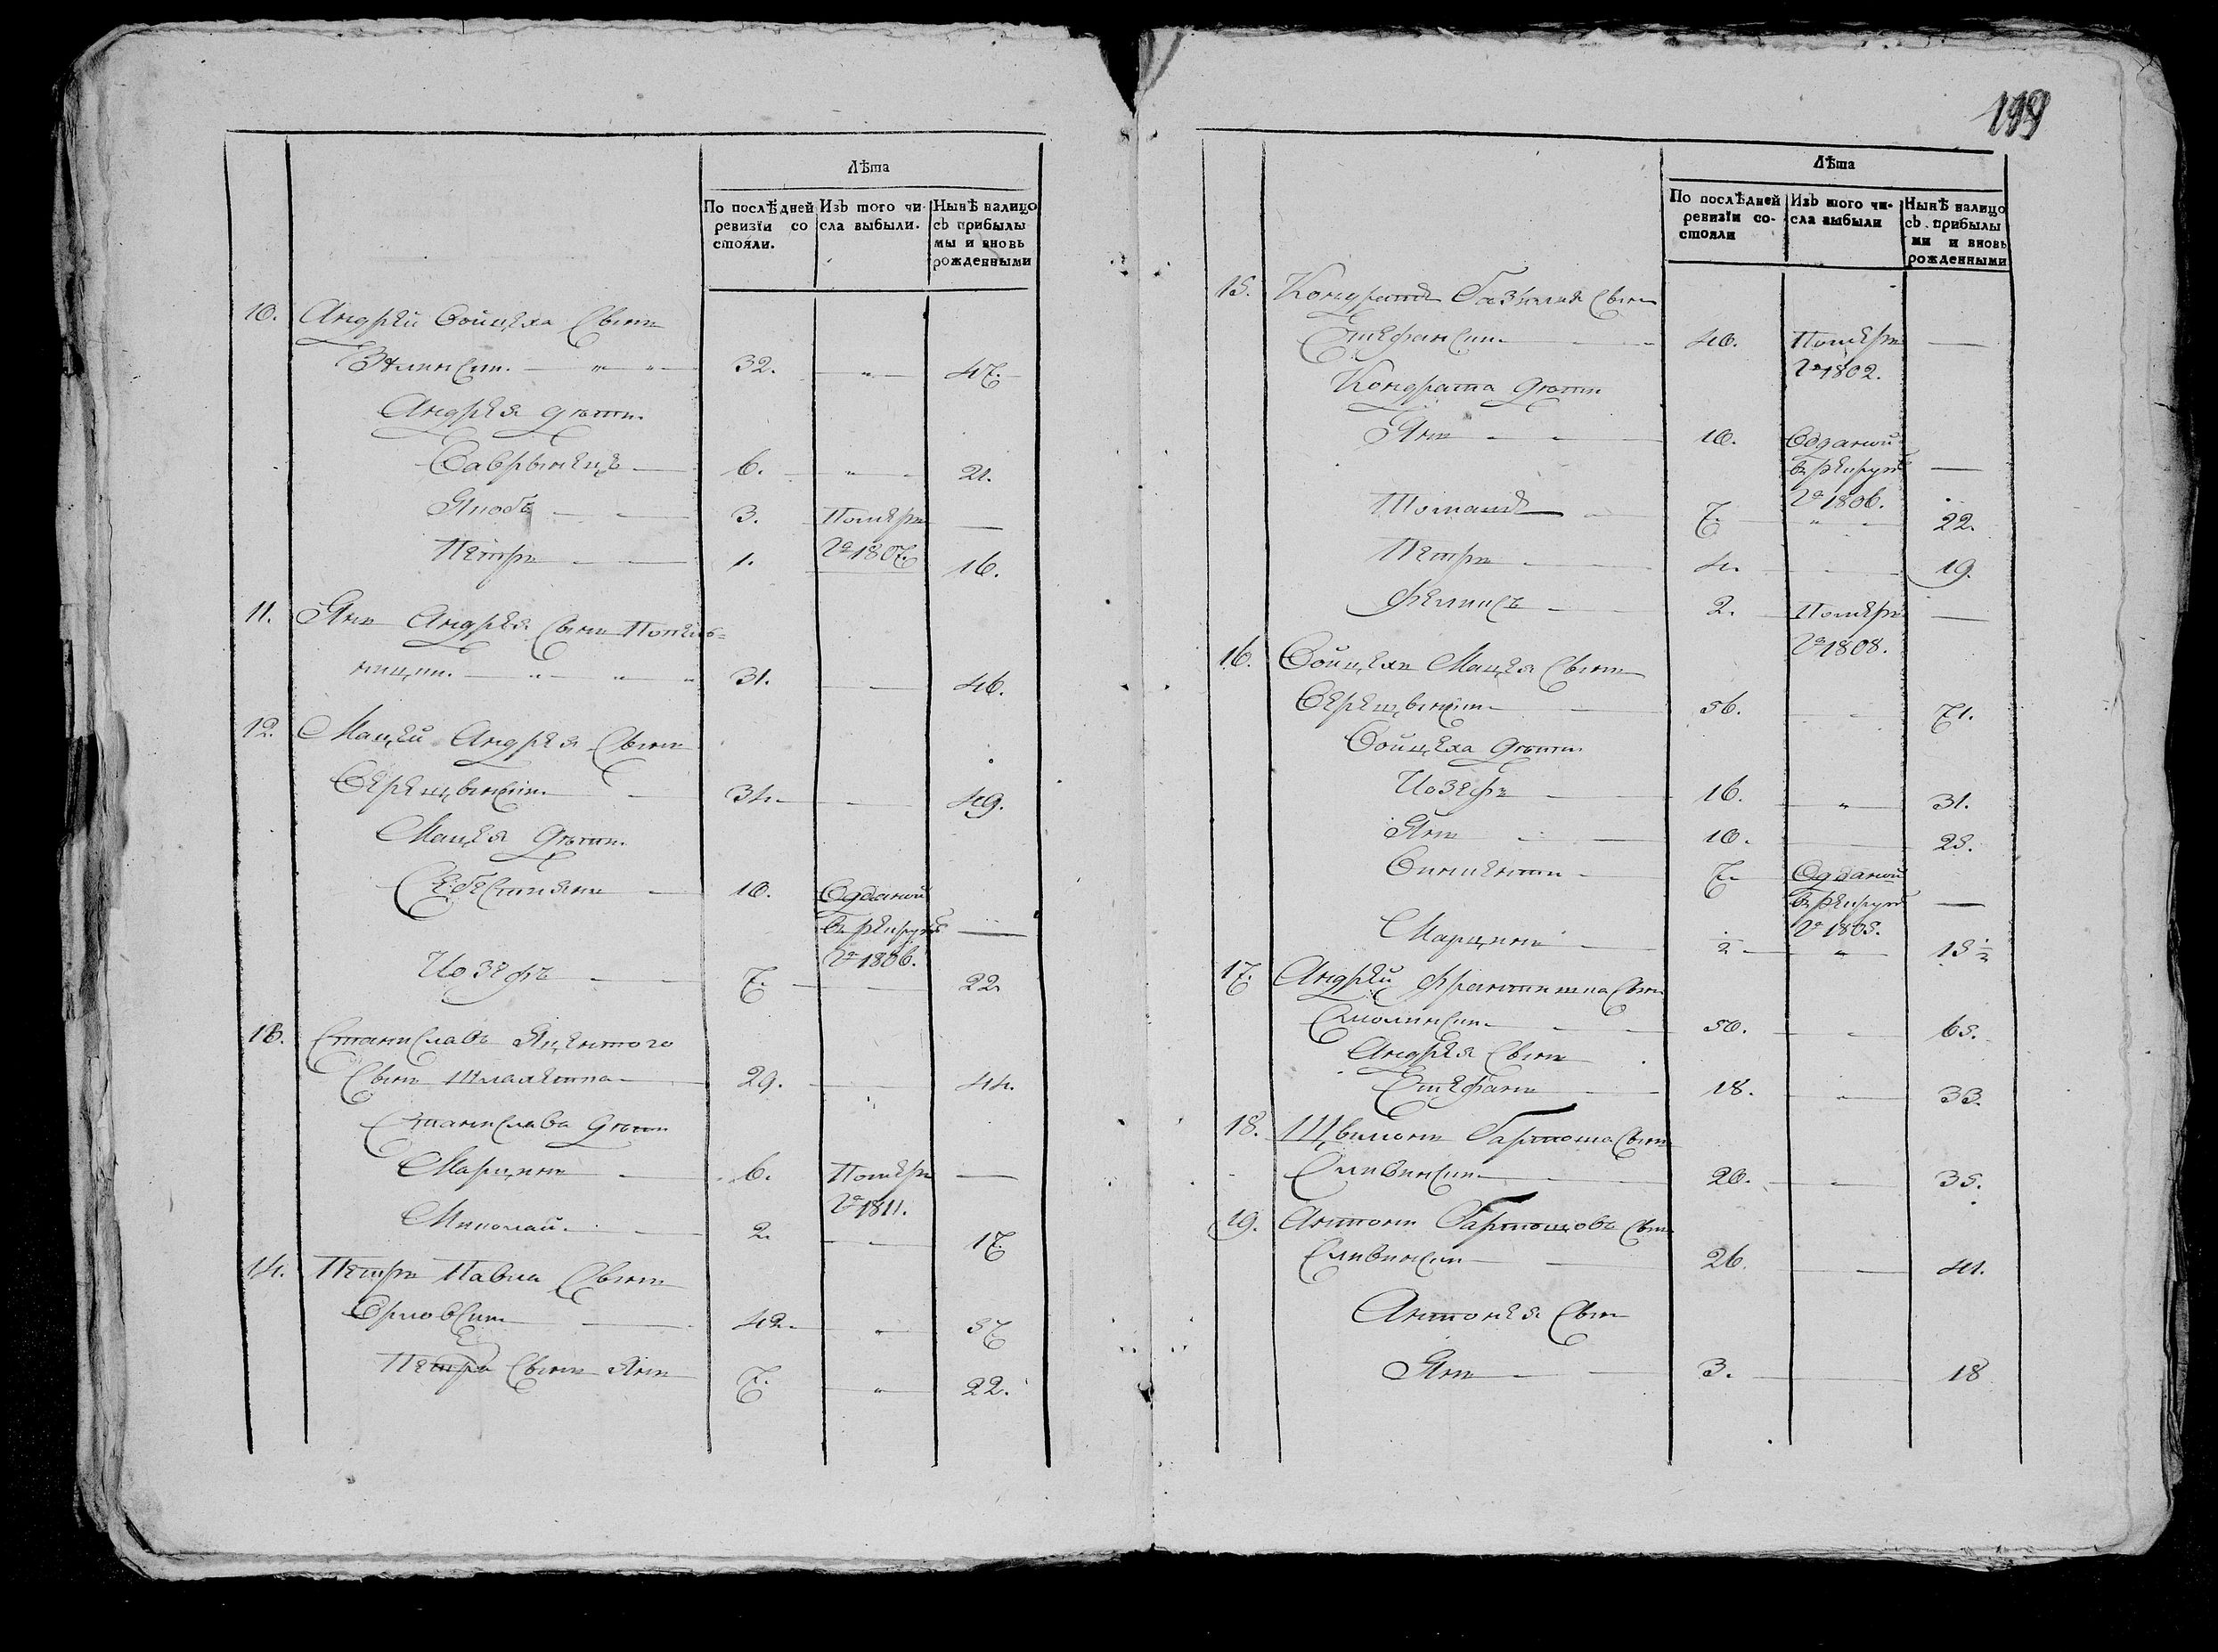 Лѣта
По послѣдней ревизїи со стояли.
Изъ того чи- сла выбыли.
Нынѣ налицо съ прибылы мы и вновь рожденными
10. Андрей Войцеха Сынъ
Зелинский 32. 47.
Андрея дѣти
Вавринецъ 6. 21.
Якобъ 3. Померъ —
Петръ 1. 1807. 16.
11. Янъ Андрея Сынъ
31. 46.
12. Мацей Андрея Сынъ
34. 49.
Мацея дѣти
Себестиянъ 10. Одданый
въ рекруты —
Иозефъ 7. 1806. 22.
13. Станиславъ Яцентого
Сынъ 29. 44.
Станислава дѣти
Марцинъ 6. Померъ —
Миколай 2. 1811. 17.
14. Петръ Павла Сынъ
Орловский 42. 57.
Петра Сынъ Янъ 7. 22.
199
Лѣта
По послѣдней ревизїи со- стояли
Изъ того чи- сла выбыли
Нынѣ налицо съ прибылы ми и вновь рожденными
15. Кондратъ Сынъ
Стефанский 40. Померъ —
1802.
Кондрата дѣти
Янъ 10. Одданый
въ рекруты —
1806.
Томашъ 7. 22.
Петръ 4. 19.
Феликсъ 2. Померъ —
1808.
16. Войцехъ Мацея Сынъ
56. 71.
Войцеха дѣти
Иозефъ 16. 31.
Янъ 10. 25.
Винцентий 7. Одданый
въ рекруты —
1805.
Марцинъ ½ 15½
17. Андрей Франтишка Сынъ
Смолинский 50. 65.
Андрея Сынъ
Стефанъ 18. 33.
18. Бартоша Сынъ
Сливинский 20. 35.
19. Антони Бартошовъ Сынъ
Сливинский 26. 41.
Антонея Сынъ
Янъ 3. 18